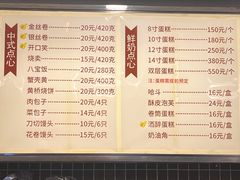 中式点心
金丝卷 20元/420克
银丝卷 20元/420克
开口笑 20元/400克
烧卖 15元/400克
八宝饭 20元/280克
蟹壳黄 20元/400克
黄桥烧饼 20元/300克
肉包子 20元/4只
菜包子 14元/4只
刀切馒头 10元/6只
花卷馒头 15元/6只
鲜奶点心
8寸蛋糕 150元/个
10寸蛋糕 180元/个
12寸蛋糕 280元/个
14寸蛋糕 380元/个
双层蛋糕 550元/个
注:蛋糕需提前预定
哈斗 16元/盒
酥皮泡芙 24元/盒
卷筒蛋糕 16元/盒
酒醉蛋糕 16元/盒
奶油角 16元/盒